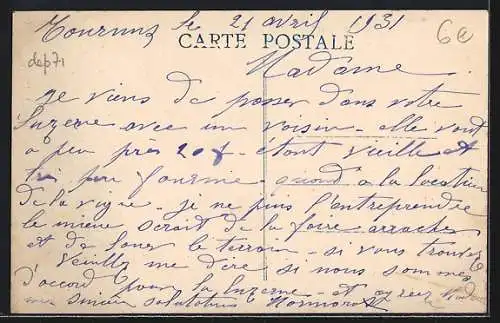 Tournus le 21 avril 1931
6e
CARTE POSTALE
dep 71
Madame
je viens de passer dans votre
luzerne avec un voisin - elle vaut
a peu près 20 f - étant vieille et
très peu fournie - quand a la location
de la vigne - je ne puis l'entreprendre
le mieux serait de la faire arracher
et de louer le terrain - si vous trouvez
veuillez me dire si nous sommes
d'accord pour la luzerne - et agréez Madame
mes sincères salutations